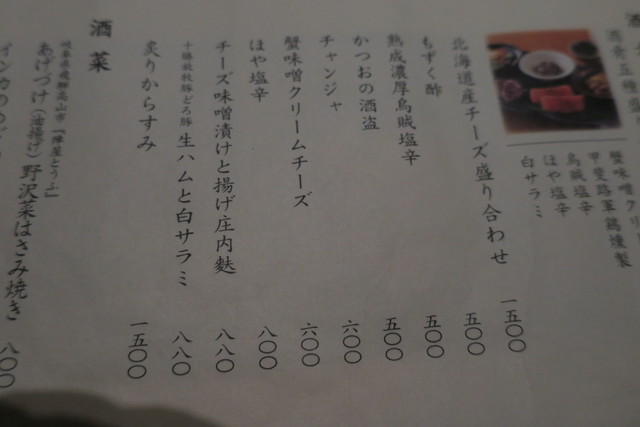 蟹味噌クリ
甲斐路軍鶏燻製
烏賊塩辛
ほや塩辛
白サラミ
北海道産チーズ盛り合わせ 一五〇〇
もずく酢 五〇〇
熟成濃厚烏賊塩辛 五〇〇
かつおの酒盗 五〇〇
チャンジャ 六〇〇
蟹味噌クリームチーズ 六〇〇
ほや塩辛 八〇〇
チーズ味噌漬けと揚げ庄内麩 八八〇
十勝放牧豚どろ豚 生ハムと白サラミ 八八〇
炙りからすみ 一五〇〇
酒菜
岐阜県飛騨高山市『陣屋とうふ』
あげづけ（油揚げ）野沢菜はさみ焼き 八〇〇